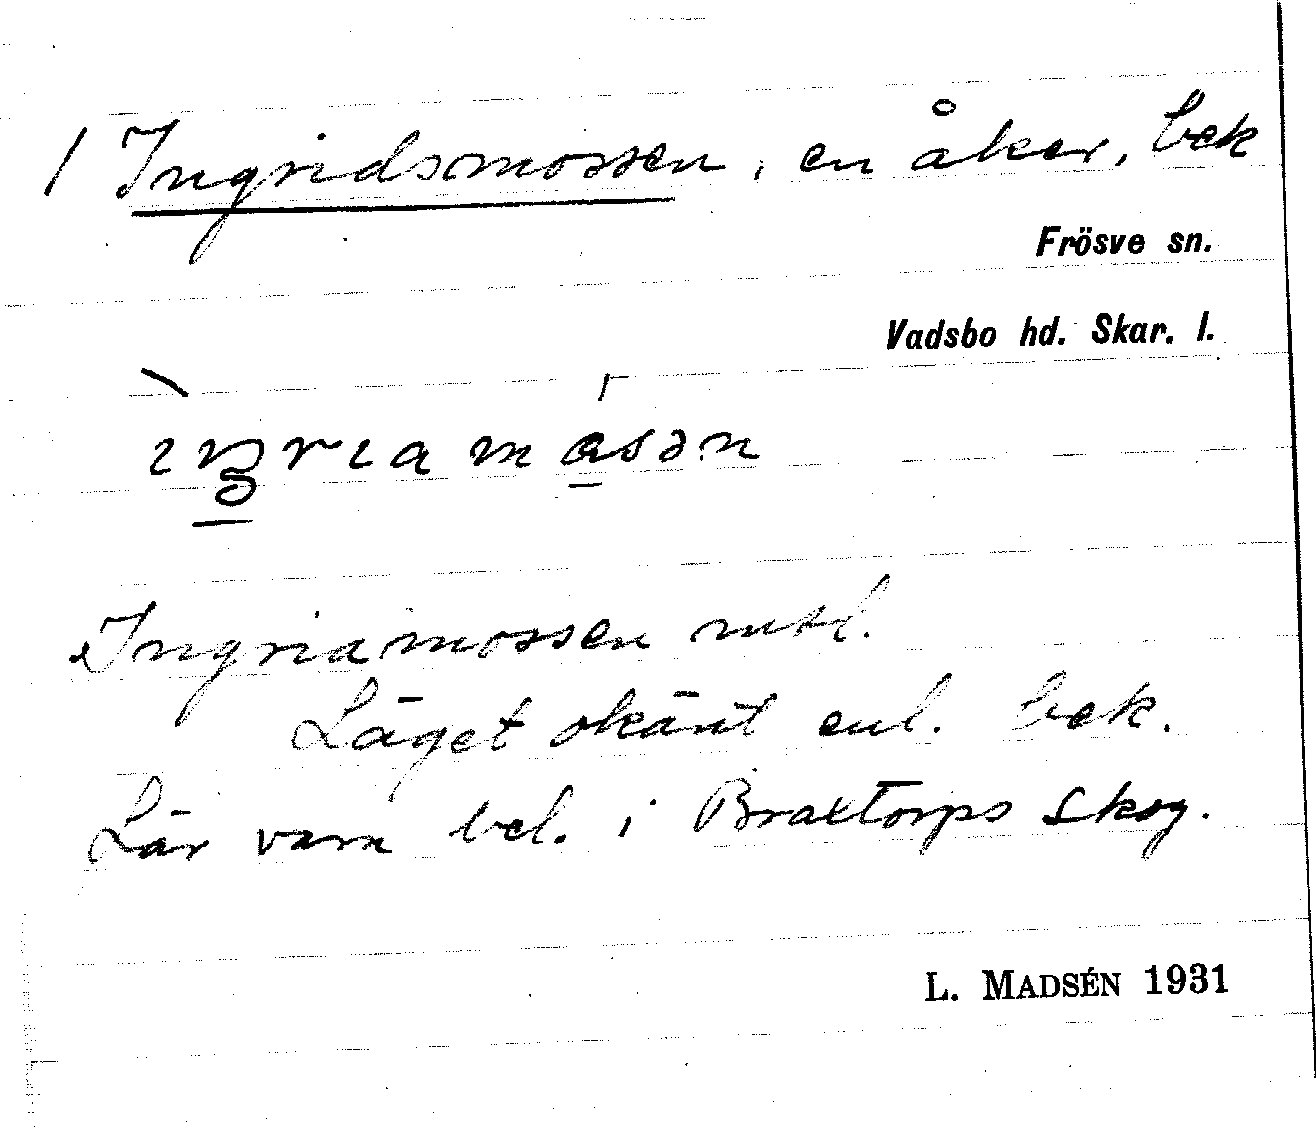 / Ingridsmossen, en åker, bek
Frösve sn.
Vadsbo hd. Skar. l.
ıŋgrıamasən
Ingriamossen mtl.
Läget okänt enl. bek.
Lär vara bel. i Braxtorps skog.
L. MADSÉN 1931